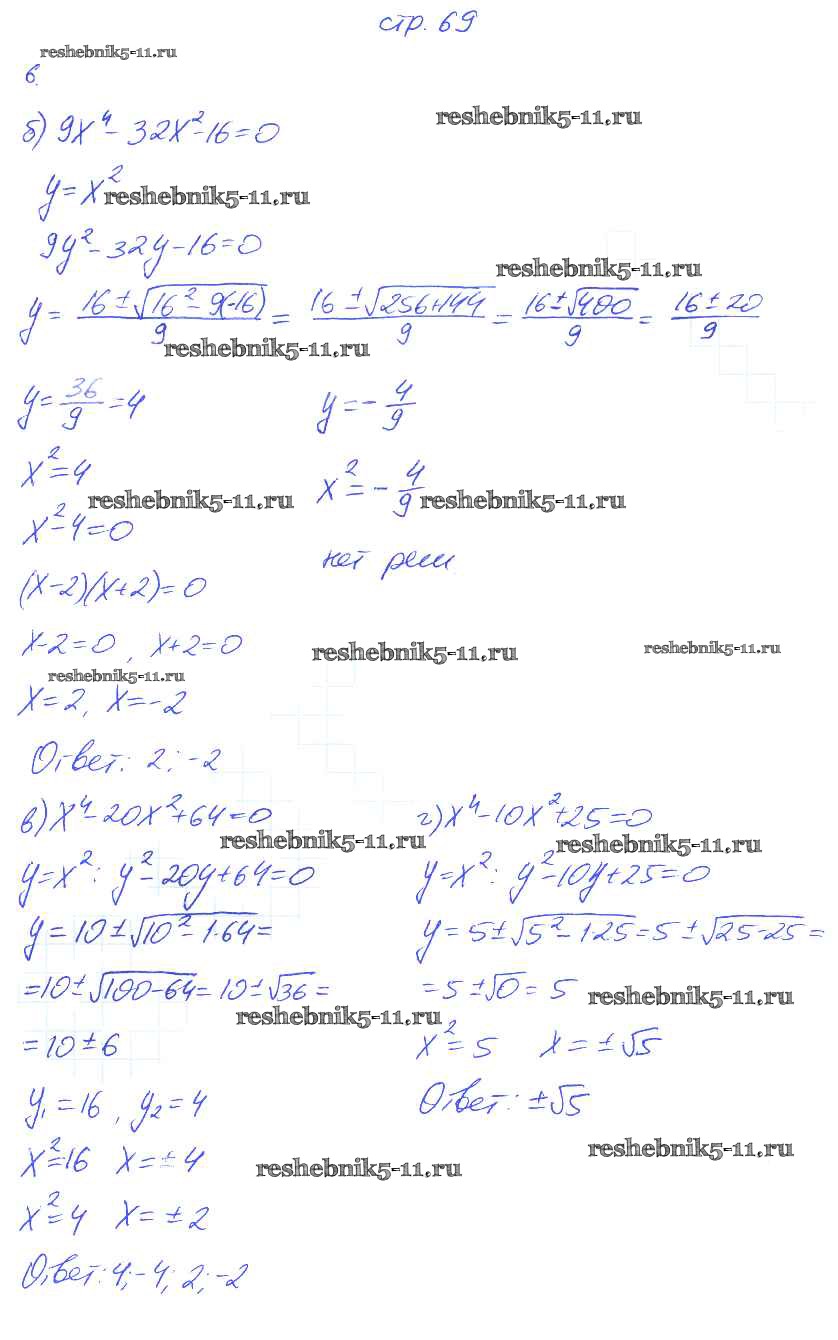 стр. 69
reshebnik5-11.ru
6.
б) 9x⁴ - 32x² - 16 = 0
reshebnik5-11.ru
y = x²
reshebnik5-11.ru
9y² - 32y - 16 = 0
reshebnik5-11.ru
y = (16 ± √(16² - 9(-16)))/9 = (16 ± √(256+144))/9 = (16 ± √400)/9 = (16 ± 20)/9
reshebnik5-11.ru
y = 36/9 = 4 y = -4/9
x² = 4 x² = -4/9
reshebnik5-11.ru reshebnik5-11.ru
x² - 4 = 0
нет реш.
(x-2)(x+2) = 0
x-2=0, x+2=0
reshebnik5-11.ru reshebnik5-11.ru
reshebnik5-11.ru
x = 2, x = -2
Ответ: 2; -2
в) x⁴ - 20x² + 64 = 0
reshebnik5-11.ru
y = x²: y² - 20y + 64 = 0
y = 10 ± √(10² - 1·64) =
= 10 ± √(100-64) = 10 ± √36 =
reshebnik5-11.ru
= 10 ± 6
y₁ = 16, y₂ = 4
x² = 16 x = ± 4
reshebnik5-11.ru
x² = 4 x = ± 2
Ответ: 4; -4; 2; -2
г) x⁴ - 10x² + 25 = 0
reshebnik5-11.ru
y = x²: y² - 10y + 25 = 0
y = 5 ± √(5² - 1·25) = 5 ± √(25-25) =
= 5 ± √0 = 5
reshebnik5-11.ru
x² = 5 x = ±√5
Ответ: ±√5
reshebnik5-11.ru